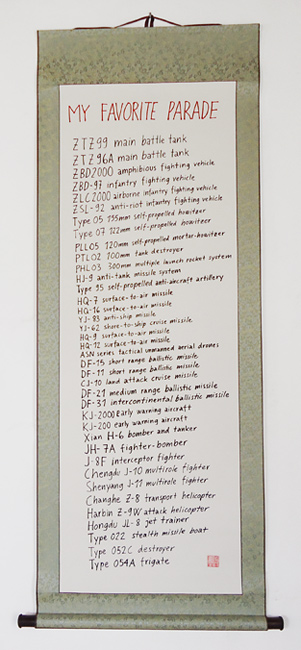 MY FAVORITE PARADE
ZTZ99 main battle tank
ZTZ96A main battle tank
ZBD2000 amphibious fighting vehicle
ZBD-97 infantry fighting vehicle
ZLC2000 airborne infantry fighting vehicle
ZSL-92 anti-riot infantry fighting vehicle
Type 05 155mm self-propelled howitzer
Type 07 122mm self-propelled howitzer
PLL05 120mm self-propelled mortar-howitzer
PTL02 100mm tank destroyer
PHL03 300mm multiple launch rocket system
HJ-9 anti-tank missile system
Type 95 self-propelled anti-aircraft artillery
HQ-7 surface-to-air missile
HQ-16 surface-to-air missile
YJ-83 anti-ship missile
YJ-62 shore-to-ship cruise missile
HQ-9 surface-to-air missile
HQ-12 surface-to-air missile
ASN series tactical unmanned aerial drones
DF-15 short range ballistic missile
DF-11 short range ballistic missile
CJ-10 land attack cruise missile
DF-21 medium range ballistic missile
DF-31 intercontinental ballistic missile
KJ-2000 early warning aircraft
KJ-200 early warning aircraft
Xian H-6 bomber and tanker
JH-7A fighter-bomber
J-8F interceptor fighter
Chengdu J-10 multirole fighter
Shenyang J-11 multirole fighter
Changhe Z-8 transport helicopter
Harbin Z-9W attack helicopter
Hongdu JL-8 jet trainer
Type 022 stealth missile boat
Type 052C destroyer
Type 054A frigate